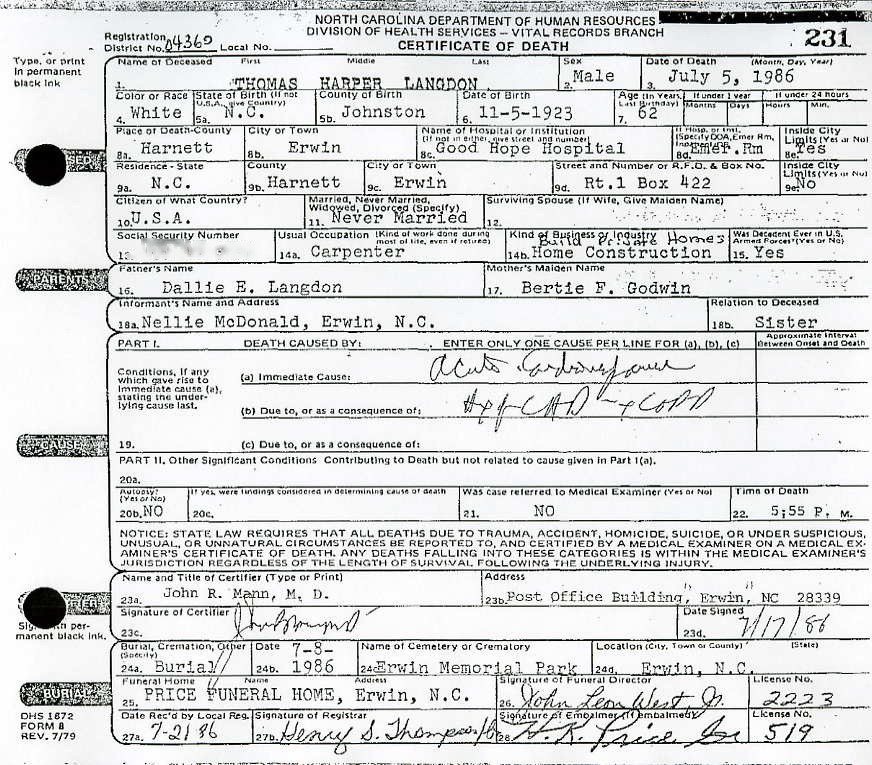 NORTH CAROLINA DEPARTMENT OF HUMAN RESOURCES
DIVISION OF HEALTH SERVICES – VITAL RECORDS BRANCH
CERTIFICATE OF DEATH
231
Registration District No. 04360 Local No.
Type, or print in permanent black ink
Name of Deceased First Middle Last Sex Date of Death (Month, Day, Year)
1. THOMAS HARPER LANGDON 2. Male 3. July 5, 1986
Color or Race State of Birth (If not U.S.A., give Country) County of Birth Date of Birth Age (In Years, Last Birthday) If under 1 year If under 24 hours
Months Days Hours Min.
4. White 5a. N.C. 5b. Johnston 6. 11-5-1923 7. 62
Place of Death-County City or Town Name of Hospital or Institution (If not in either, give street and number) If Hosp. or Inst. (Specify DOA, Emer Rm, Inside City Limits (Yes or No)
8a. Harnett 8b. Erwin 8c. Good Hope Hospital 8d. Emer.Rm 8e. Yes
Residence - State County City or Town Street and Number or R.F.D. & Box No. Inside City Limits (Yes or No)
9a. N.C. 9b. Harnett 9c. Erwin 9d. Rt.1 Box 422 9e. No
Citizen of What Country? Married, Never Married, Widowed, Divorced (Specify) Surviving Spouse (If Wife, Give Maiden Name)
10. U.S.A. 11. Never Married 12.
Social Security Number Usual Occupation (Kind of work done during most of life, even if retired) Kind of Business or Industry Was Decedent Ever in U.S. Armed Forces? (Yes or No)
Build Private Homes
13. 14a. Carpenter 14b. Home Construction 15. Yes
PARENTS
Father's Name Mother's Maiden Name
16. Dallie E. Langdon 17. Bertie F. Godwin
Informant's Name and Address Relation to Deceased
18a. Nellie McDonald, Erwin, N.C. 18b. Sister
PART I. DEATH CAUSED BY: ENTER ONLY ONE CAUSE PER LINE FOR (a), (b), (c) Approximate Interval Between Onset and Death
Conditions, if any which gave rise to immediate cause (a), stating the underlying cause last.
(a) Immediate Cause: Acute
(b) Due to, or as a consequence of: CAD COPD
CAUSE
19. (c) Due to, or as a consequence of:
PART II. Other Significant Conditions Contributing to Death but not related to cause given in Part I(a).
20a.
Autopsy? (Yes or No) If yes, were findings considered in determining cause of death Was case referred to Medical Examiner (Yes or No) Time of Death
20b. NO 20c. 21. NO 22. 5;55 P. M.
NOTICE: STATE LAW REQUIRES THAT ALL DEATHS DUE TO TRAUMA, ACCIDENT, HOMICIDE, SUICIDE, OR UNDER SUSPICIOUS,
UNUSUAL, OR UNNATURAL CIRCUMSTANCES BE REPORTED TO, AND CERTIFIED BY A MEDICAL EXAMINER ON A MEDICAL EX-
AMINER'S CERTIFICATE OF DEATH. ANY DEATHS FALLING INTO THESE CATEGORIES IS WITHIN THE MEDICAL EXAMINER'S
JURISDICTION REGARDLESS OF THE LENGTH OF SURVIVAL FOLLOWING THE UNDERLYING INJURY.
Name and Title of Certifier (Type or Print) Address
23a. John R. Mann, M. D. 23b. Post Office Building, Erwin, NC 28339
Signature of Certifier Date Signed
23c. 23d. 7/17/86
manent black ink.
Burial, Cremation, Other (Specify) Date Name of Cemetery or Crematory Location (City, Town or County) (State)
24a. Burial 24b. 7-8-1986 24c Erwin Memorial Park 24d. Erwin, N.C.
BURIAL
Funeral Home Name Address Signature of Funeral Director License No.
25. PRICE FUNERAL HOME, Erwin, N.C. 26. John Leon West, Jr. 2223
Date Rec'd by Local Reg. Signature of Registrar Signature of Embalmer (If embalmed) License No.
27a. 7-21 86 27b. Henry S. Thompson 28. H. K. Price Sr 519
DHS 1872
FORM 8
REV. 7/79